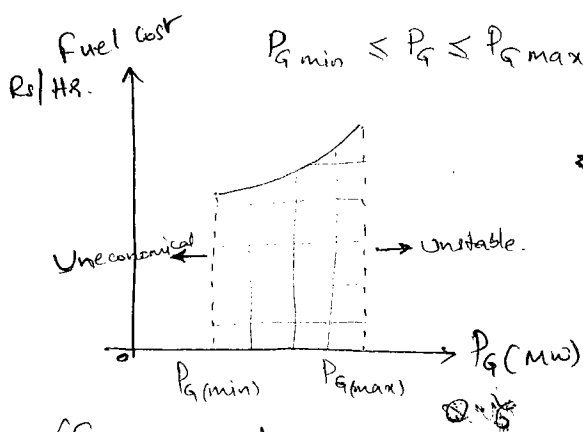 Fuel Cost
Rs/HR.
P_G min ≤ P_G ≤ P_G max
Uneconomical
Unstable.
P_G(min)
P_G(max)
P_G (MW)
0